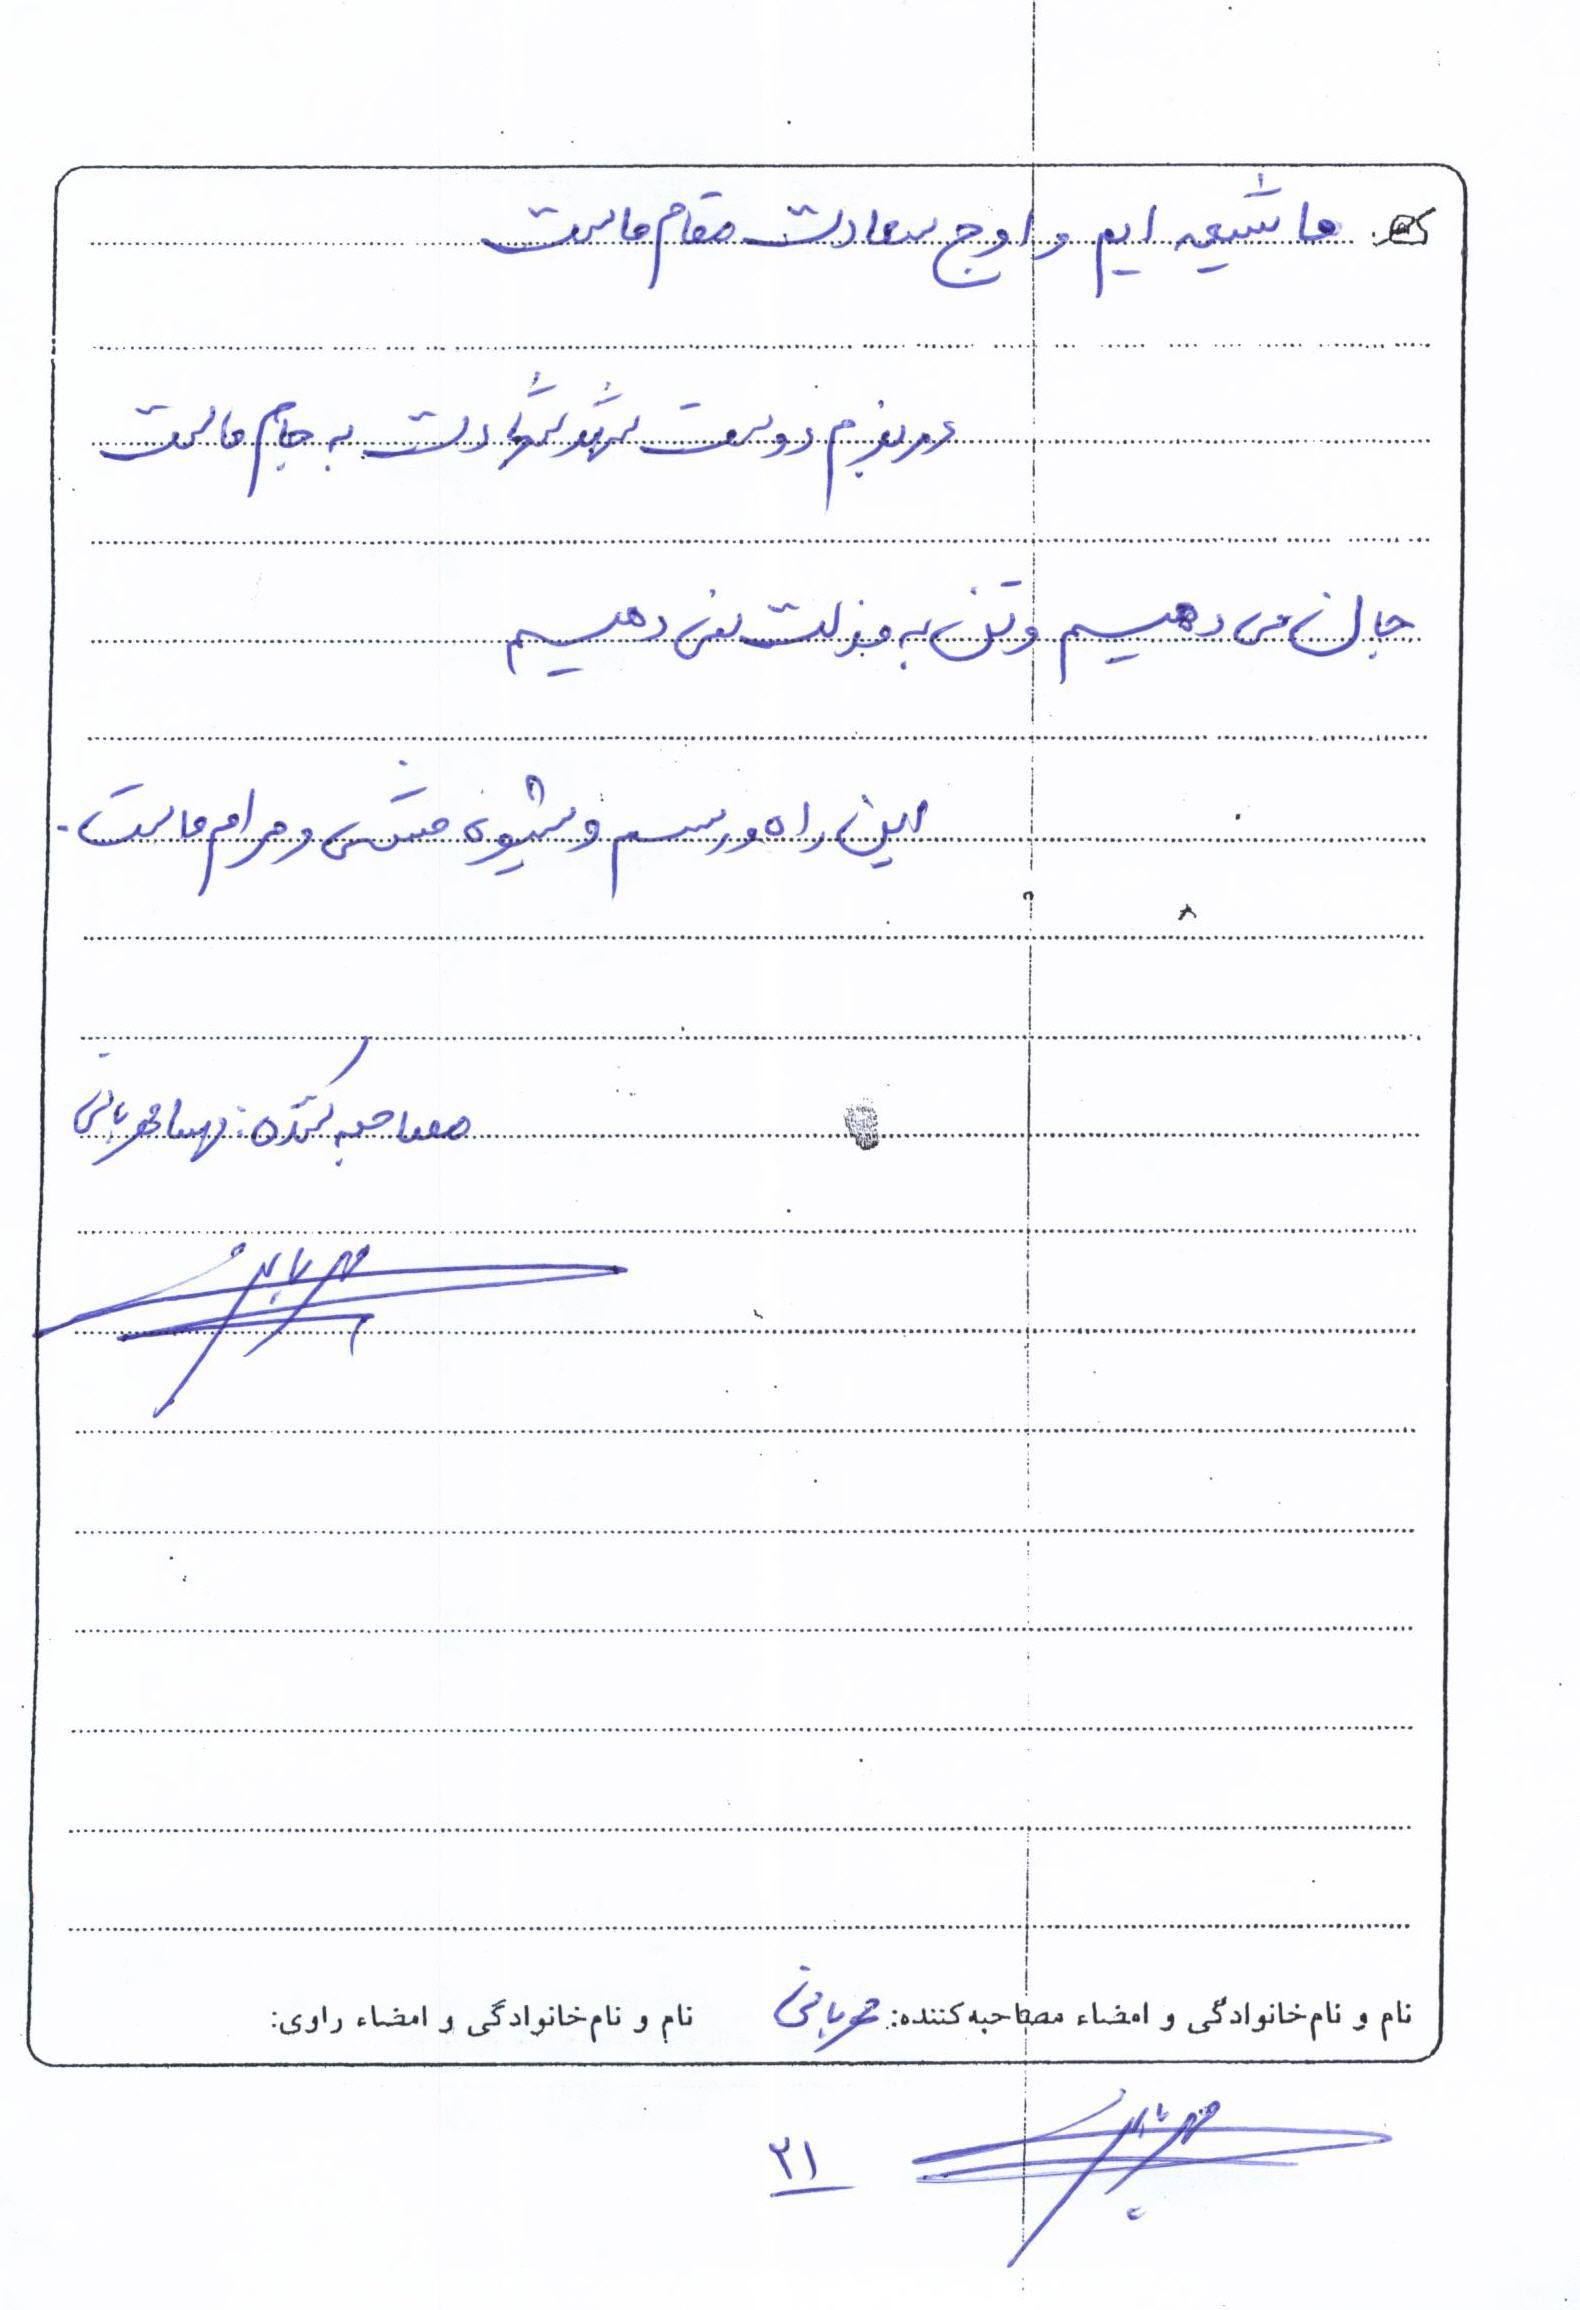 ما شیعه ایم و اوج سعادت مقام ماست
در بزم دوست شهد شهادت به جام ماست
جان می دهیم و تن به مذلت نمی دهیم
این راه و رسم و شیوه مشی و مرام ماست.
مصاحبه کننده: مهسا مهربانی
مهربانی
نام و نام خانوادگی و امضاء مصاحبه کننده: مهربانی
نام و نام خانوادگی و امضاء راوی:
مهربانی
۲۱